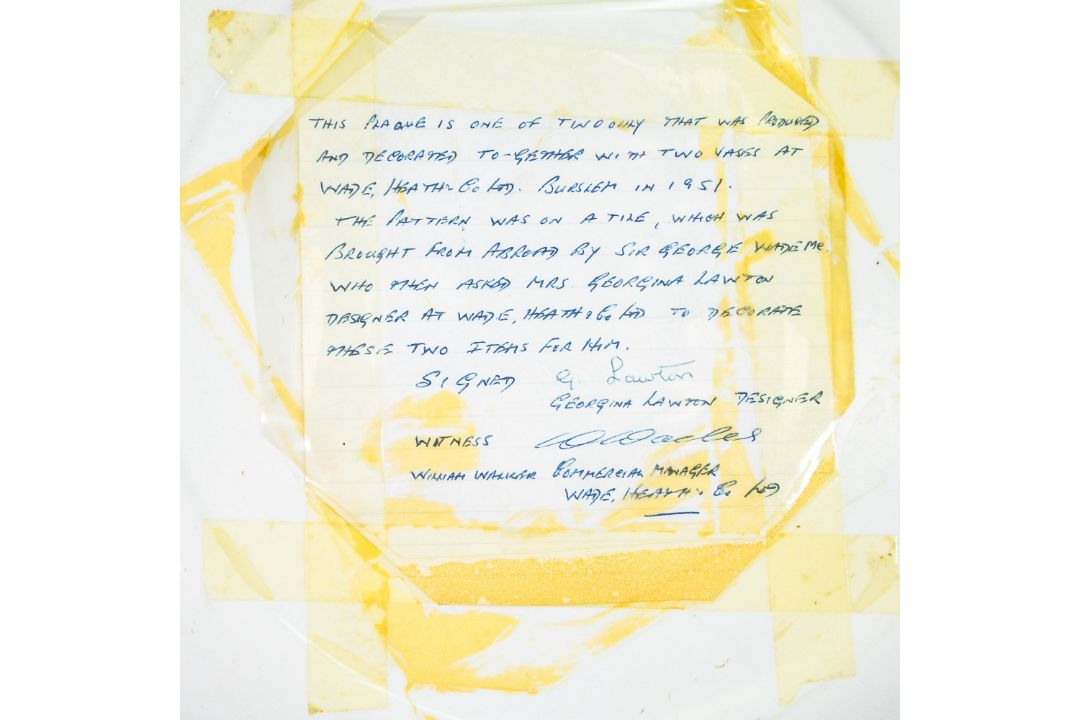 THIS PLAQUE IS ONE OF TWO ONLY THAT WAS PRODUCED
AND DECORATED TO-GETHER WITH TWO VASES AT
WADE, HEATH & Co LTD. BURSLEM IN 1951.
THE PATTERN WAS ON A TILE, WHICH WAS
BROUGHT FROM ABROAD BY SIR GEORGE WADE
WHO THEN ASKED MRS GEORGINA LAWTON
DESIGNER AT WADE, HEATH & Co LTD TO DECORATE
THESE TWO ITEMS FOR HIM.
SIGNED G. Lawton
GEORGINA LAWTON DESIGNER
WITNESS
WILLIAM WALKER COMMERCIAL MANAGER
WADE, HEATH & Co LTD